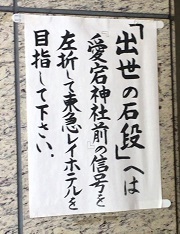 「出世の石段」へは
『愛宕神社前』の信号を
左折して東急レイホテルを
目指して下さい。